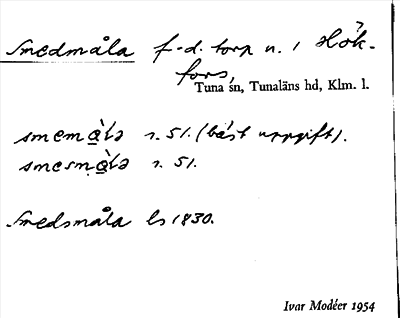 Smedmåla f.d. torp u. 1 Hök-
fors,
Tuna sn, Tunaläns hd, Klm. l.
smemɑ̀lə r. 51. (bäst uppgift).
smesmɑ̀lə r. 51.
Smedsmåla ls 1830.
Ivar Modéer 1954